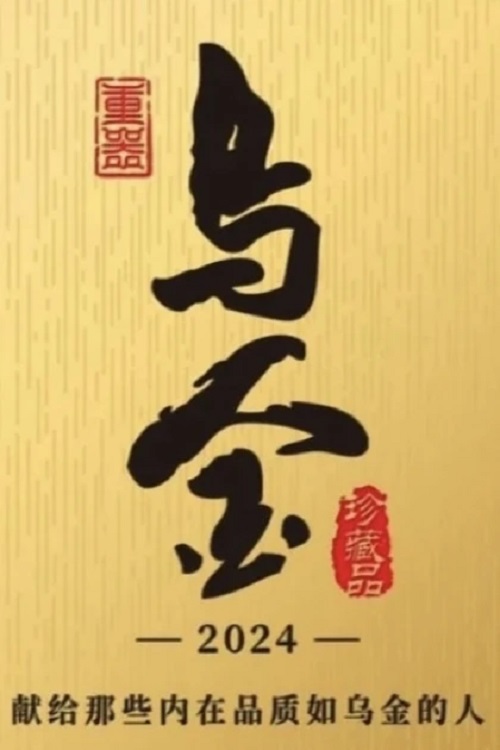 重器
乌金
珍藏品
— 2024 —
献给那些内在品质如乌金的人